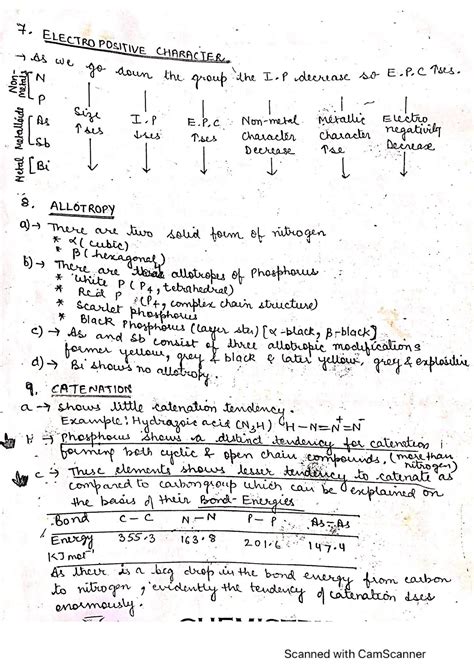 7. ELECTROPOSITIVE CHARACTER.
→ As we go down the group the I.P decrease so E.P.C ↑ses.
Non-metals
Metalloids
Metal
N
P
As
Sb
Bi
Size ↑ses
I.P ↓ses
E.P.C ↑ses
Non-metal Character Decrease
Metallic Character ↑se
Electro negativity Decrease
8. ALLOTROPY
a) → There are two solid form of nitrogen
* α (cubic)
* β (hexagonal)
b) → There are allotropes of Phosphorus
* White P (P4, tetrahedral)
* Red P (P4, complex chain structure)
* Scarlet phosphorus
* Black Phosphorus (layer str) [α-black, β-black]
c) → As and Sb consist of three allotropic modifications
former yellow, grey & black & later yellow, grey & explosive
d) → Bi shows no allotropy.
9. CATENATION
a → Shows little catenation tendency.
Example: Hydrazoic acid (N3H) H-N=N=N
b → Phosphorus shows a distinct tendency for catenation
forming both cyclic & open chain compounds. (more than
nitrogen)
c → These elements shows lesser tendency to catenate as
compared to carbon group which can be explained on
the basis of their Bond-Energies
Bond C-C N-N P-P As-As
Energy 355.3 163.8 201.6 147.4
KJ mol-1
As their is a big drop in the bond energy from carbon
to nitrogen, evidently the tendency of catenation ↓ses
enormously.
Scanned with CamScanner